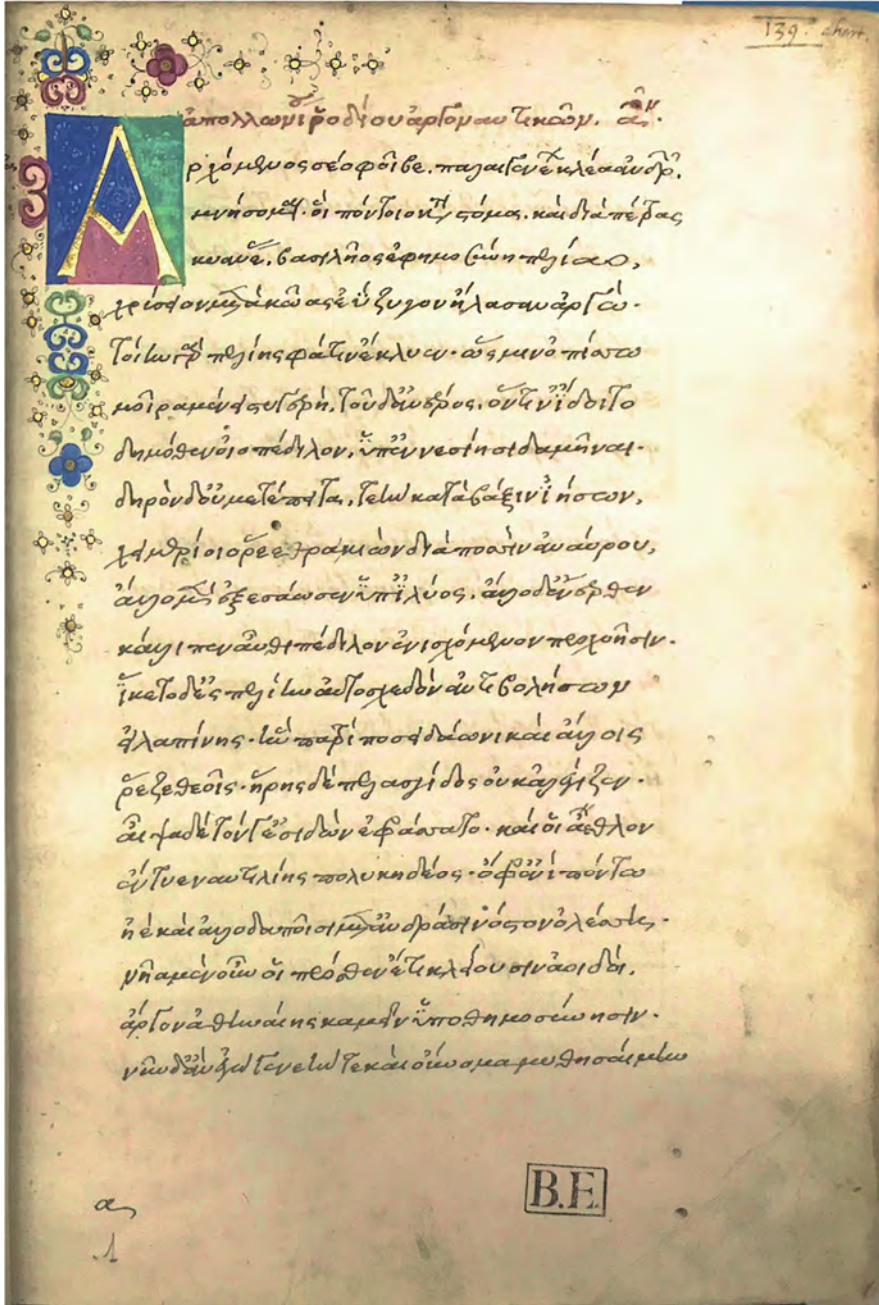 139. chart.
ἀπολλωνίου ῥοδίου ἀργοναυτικῶν. αον
Ἀρχόμενος σέο φοῖβε. παλαιγενέων κλέα ἀνδρῶν.
μνήσομαι. οἳ πόντοιο κατὰ στόμα. καὶ διὰ πέτρας
κυανέας. βασιλῆος ἐφημοσύνη πελίαο,
χρύσειον μετὰ κῶας ἐΰζυγον ἤλασαν ἀργώ.
τοίην γὰρ πελίης φάτιν ἔκλυεν. ὥς μιν ὀπίσσω
μοῖρα μένει στυγερή. τοῦδ' ἀνέρος. ὅντιν' ἴδοιτο
δημόθεν οἰοπέδιλον, ὑπ' ἐννεσίησι δαμῆναι.
δηρὸν δ' οὐ μετέπειτα. τεὴν κατὰ βάξιν ἰήσων,
χειμερίοιο ῥέεθρα κιὼν διὰ ποσσὶν ἀναύρου,
ἄλλο μὲν ἐξεσάωσεν ὑπ' ἰλύος. ἄλλο δ' ἔνερθεν
κάλλιπεν αὖθι πέδιλον ἐνισχόμενον προχοῆσιν.
ἵκετο δ' ἐς πελίην αὐτοσχεδὸν ἀντιβολήσων
εἰλαπίνης. ἣν πατρὶ ποσειδάωνι καὶ ἄλλοις
ῥέζε θεοῖς. ἥρης δὲ πελασγίδος οὐκ ἀλέγιζεν.
αἶψα δὲ τόνγ' ἐσιδὼν ἐφράσσατο. καί οἱ ἄεθλον
ἔντυεν ναυτιλίης πολυκηδέος. ὄφρ' ἐνὶ πόντω
ἠὲ καὶ ἀλλοδαποῖσι μετ' ἀνδράσι νόστον ὀλέσσῃ.
νῆα μὲν οὖν οἱ πρόσθεν ἔτι κλείουσιν ἀοιδοί.
ἄργον ἀθηναίης καμέειν ὑποθημοσύνησιν.
νῦν δ' ἂν ἐγὼ γενεήν τε καὶ οὔνομα μυθησαίμην
α
1
B.F.